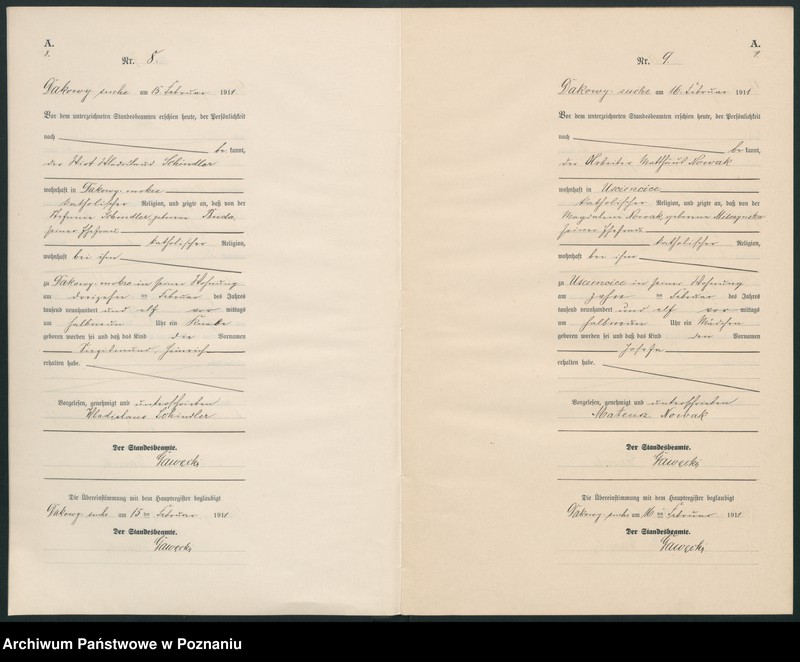 A.
8.
Nr. 8.
Dakowy suche am 15 Februar 1911
Vor dem unterzeichneten Standesbeamten erschien heute, der Persönlichkeit
nach
be kannt,
der Wirt Wladislaus Schindler
wohnhaft in Dakowy mokre
katholischer Religion, und zeigte an, daß von der
Stefanie Schindler geborene Duda
seiner Ehefrau
katholischer Religion,
wohnhaft bei ihm
zu Dakowy mokre in seiner Wohnung
am dreizehn ten Februar des Jahres
tausend neunhundert und elf vor mittags
um halbneun Uhr ein Knabe
geboren worden sei und daß das Kind die Vornamen
Siegismund Heinrich
erhalten habe.
Vorgelesen, genehmigt und unterschrieben
Wladislaus Schindler
Der Standesbeamte.
Gawecki
Die Übereinstimmung mit dem Hauptregister beglaubigt
Dakowy suche am 15 ten Februar 1911
Der Standesbeamte.
Gawecki
A.
9.
Nr. 9.
Dakowy suche am 16. Februar 1911
Vor dem unterzeichneten Standesbeamten erschien heute, der Persönlichkeit
nach
be kannt,
der Arbeiter Matthäus Nowak
wohnhaft in Usciencice
katholischer Religion, und zeigte an, daß von der
Magdalena Nowak geborene
seiner Ehefrau
katholischer Religion,
wohnhaft bei ihm
zu Usciencice in seiner Wohnung
am zehn ten Februar des Jahres
tausend neunhundert und elf vor mittags
um halbneun Uhr ein Mädchen
geboren worden sei und daß das Kind den Vornamen
Josefa
erhalten habe.
Vorgelesen, genehmigt und unterschrieben
Mateusz Nowak
Der Standesbeamte.
Gawecki
Die Übereinstimmung mit dem Hauptregister beglaubigt
Dakowy suche am 16 ten Februar 1911
Der Standesbeamte.
Gawecki
Archiwum Państwowe w Poznaniu